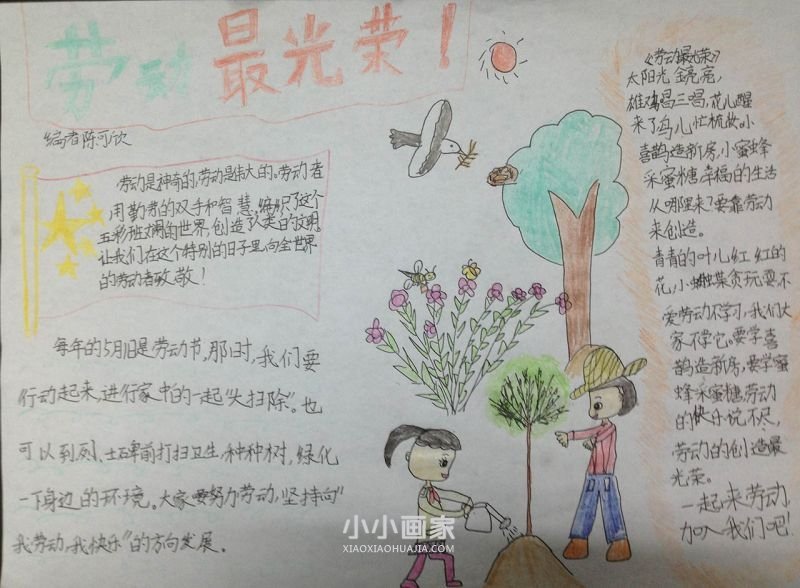 劳动最光荣！
编者陈可欣
劳动是神奇的,劳动是伟大的。劳动者
用勤劳的双手和智慧,编织了这个
五彩班斓的世界,创造了人类的文明。
让我们在这个特别的日子里,向全世界
的劳动者致敬！
每年的5月1日是劳动节,那时,我们要
行动起来,进行家中的一起“大扫除”。也
可以到烈士碑前打扫卫生,种种树,绿化
一下身边的环境。大家要努力劳动,坚持向“
我劳动,我快乐”的方向发展。
《劳动最光荣》
太阳光金亮亮,
雄鸡唱三唱,花儿醒
来了鸟儿忙梳妆。小
喜鹊造新房,小蜜蜂
采蜜糖幸福的生活
从哪里来?要靠劳动
来创造。
青青的叶儿红红的
花,小蝴蝶贪玩耍不
爱劳动不学习,我们大
家不学它。要学喜
鹊造新房,要学蜜
蜂采蜜糖,劳动
的快乐说不尽,
劳动的创造最
光荣。
一起来劳动
加入我们吧!
小小画家
XIAOXIAOHUAJIA.COM